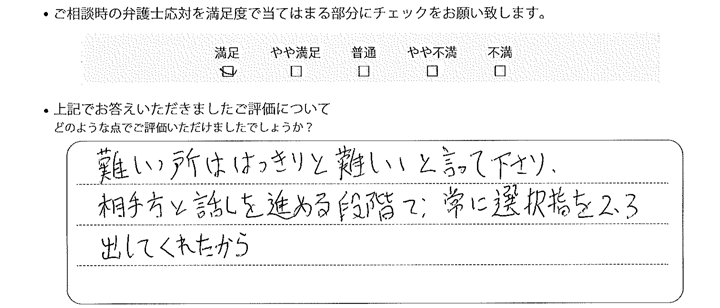 • ご相談時の弁護士応対を満足度で当てはまる部分にチェックをお願い致します。
満足 やや満足 普通 やや不満 不満
☑ □ □ □ □
• 上記でお答えいただきましたご評価について
どのような点でご評価いただけましたでしょうか？
難しい所ははっきりと難しいと言って下さり、
相手方と話しを進める段階で、常に選択指を2、3
出してくれたから